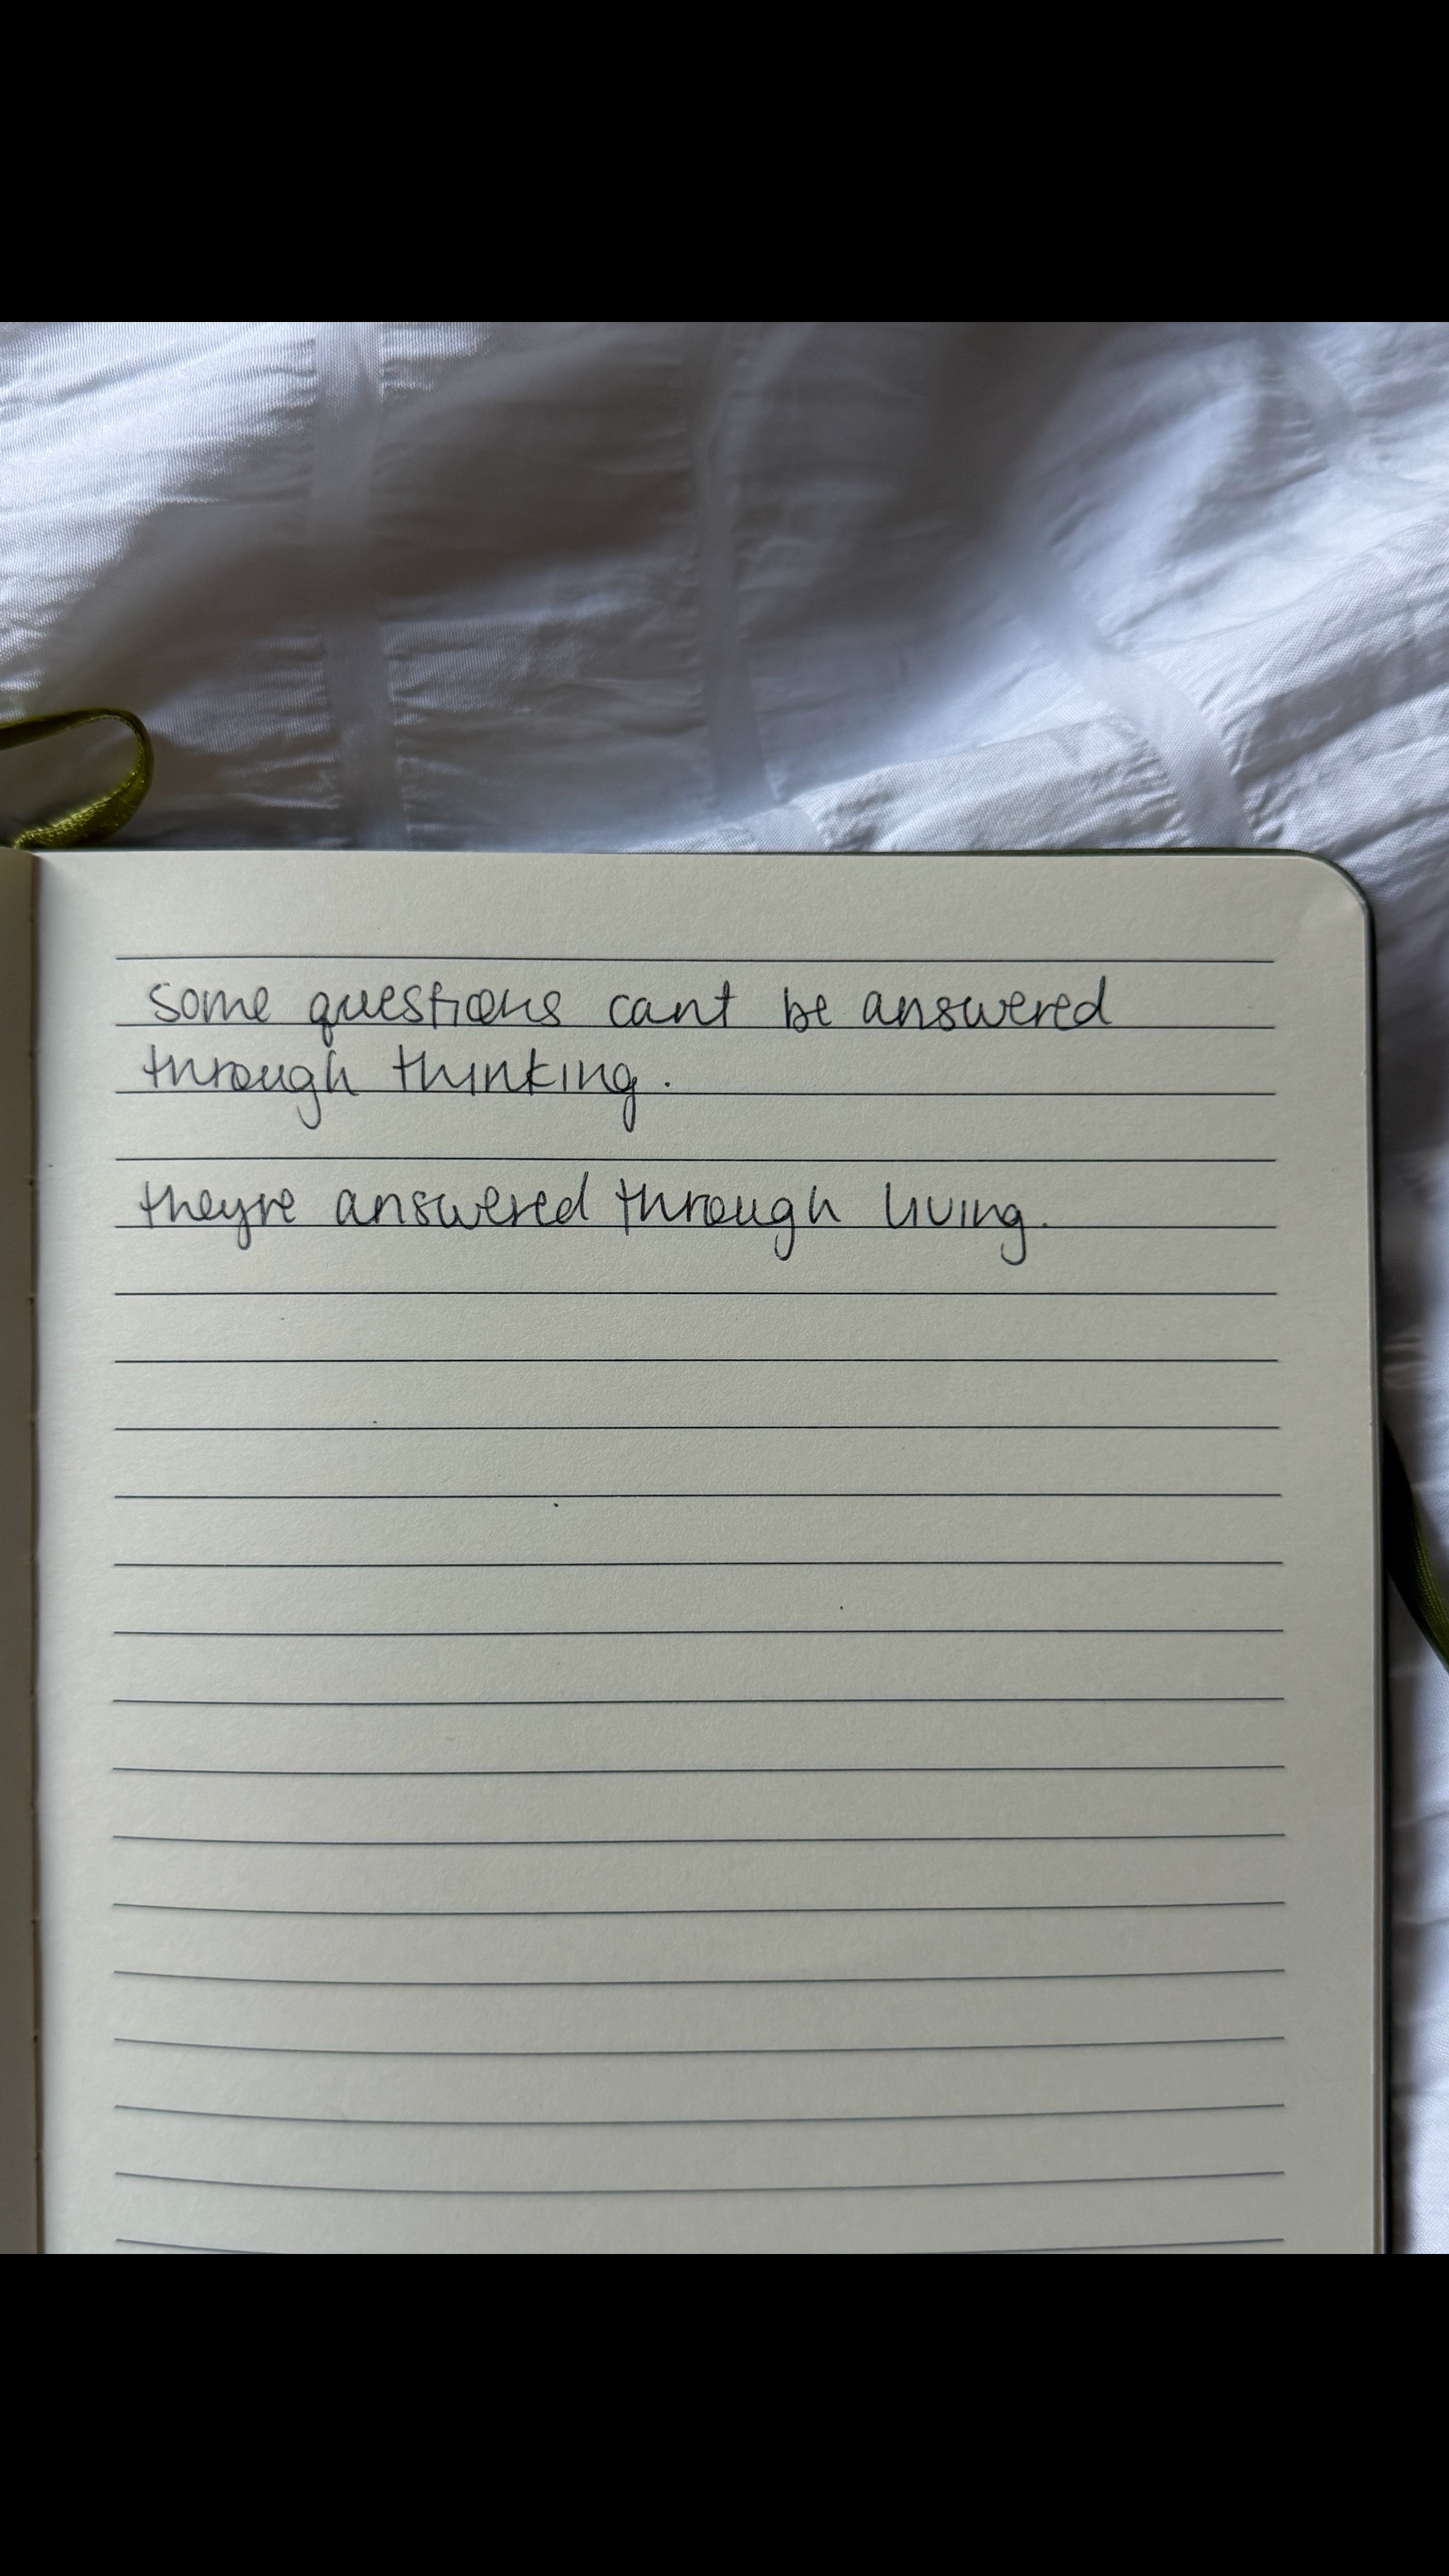 some questions cant be answered
through thinking.
theyre answered through living.